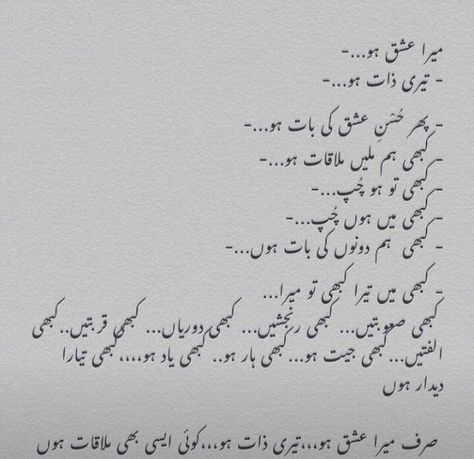 میرا عشق ہو...-
- تیری ذات ہو...-
- پھر حُسنِ عشق کی بات ہو...-
- کبھی ہم ملیں ملاقات ہو...-
- کبھی تو ہو چُپ...-
- کبھی میں ہوں چُپ...-
- کبھی ہم دونوں کی بات ہوں...-
- کبھی میں تیرا کبھی تو میرا...
کبھی صعوبتیں... کبھی رنجشیں... کبھی دوریاں... کبھی قربتیں..کبھی
الفتیں...کبھی جیت ہو...کبھی ہار ہو.. کبھی یاد ہو،،،،کبھی تیارا
دیدار ہوں
صرف میرا عشق ہو،،،تیری ذات ہو،،،کوئی ایسی بھی ملاقات ہوں